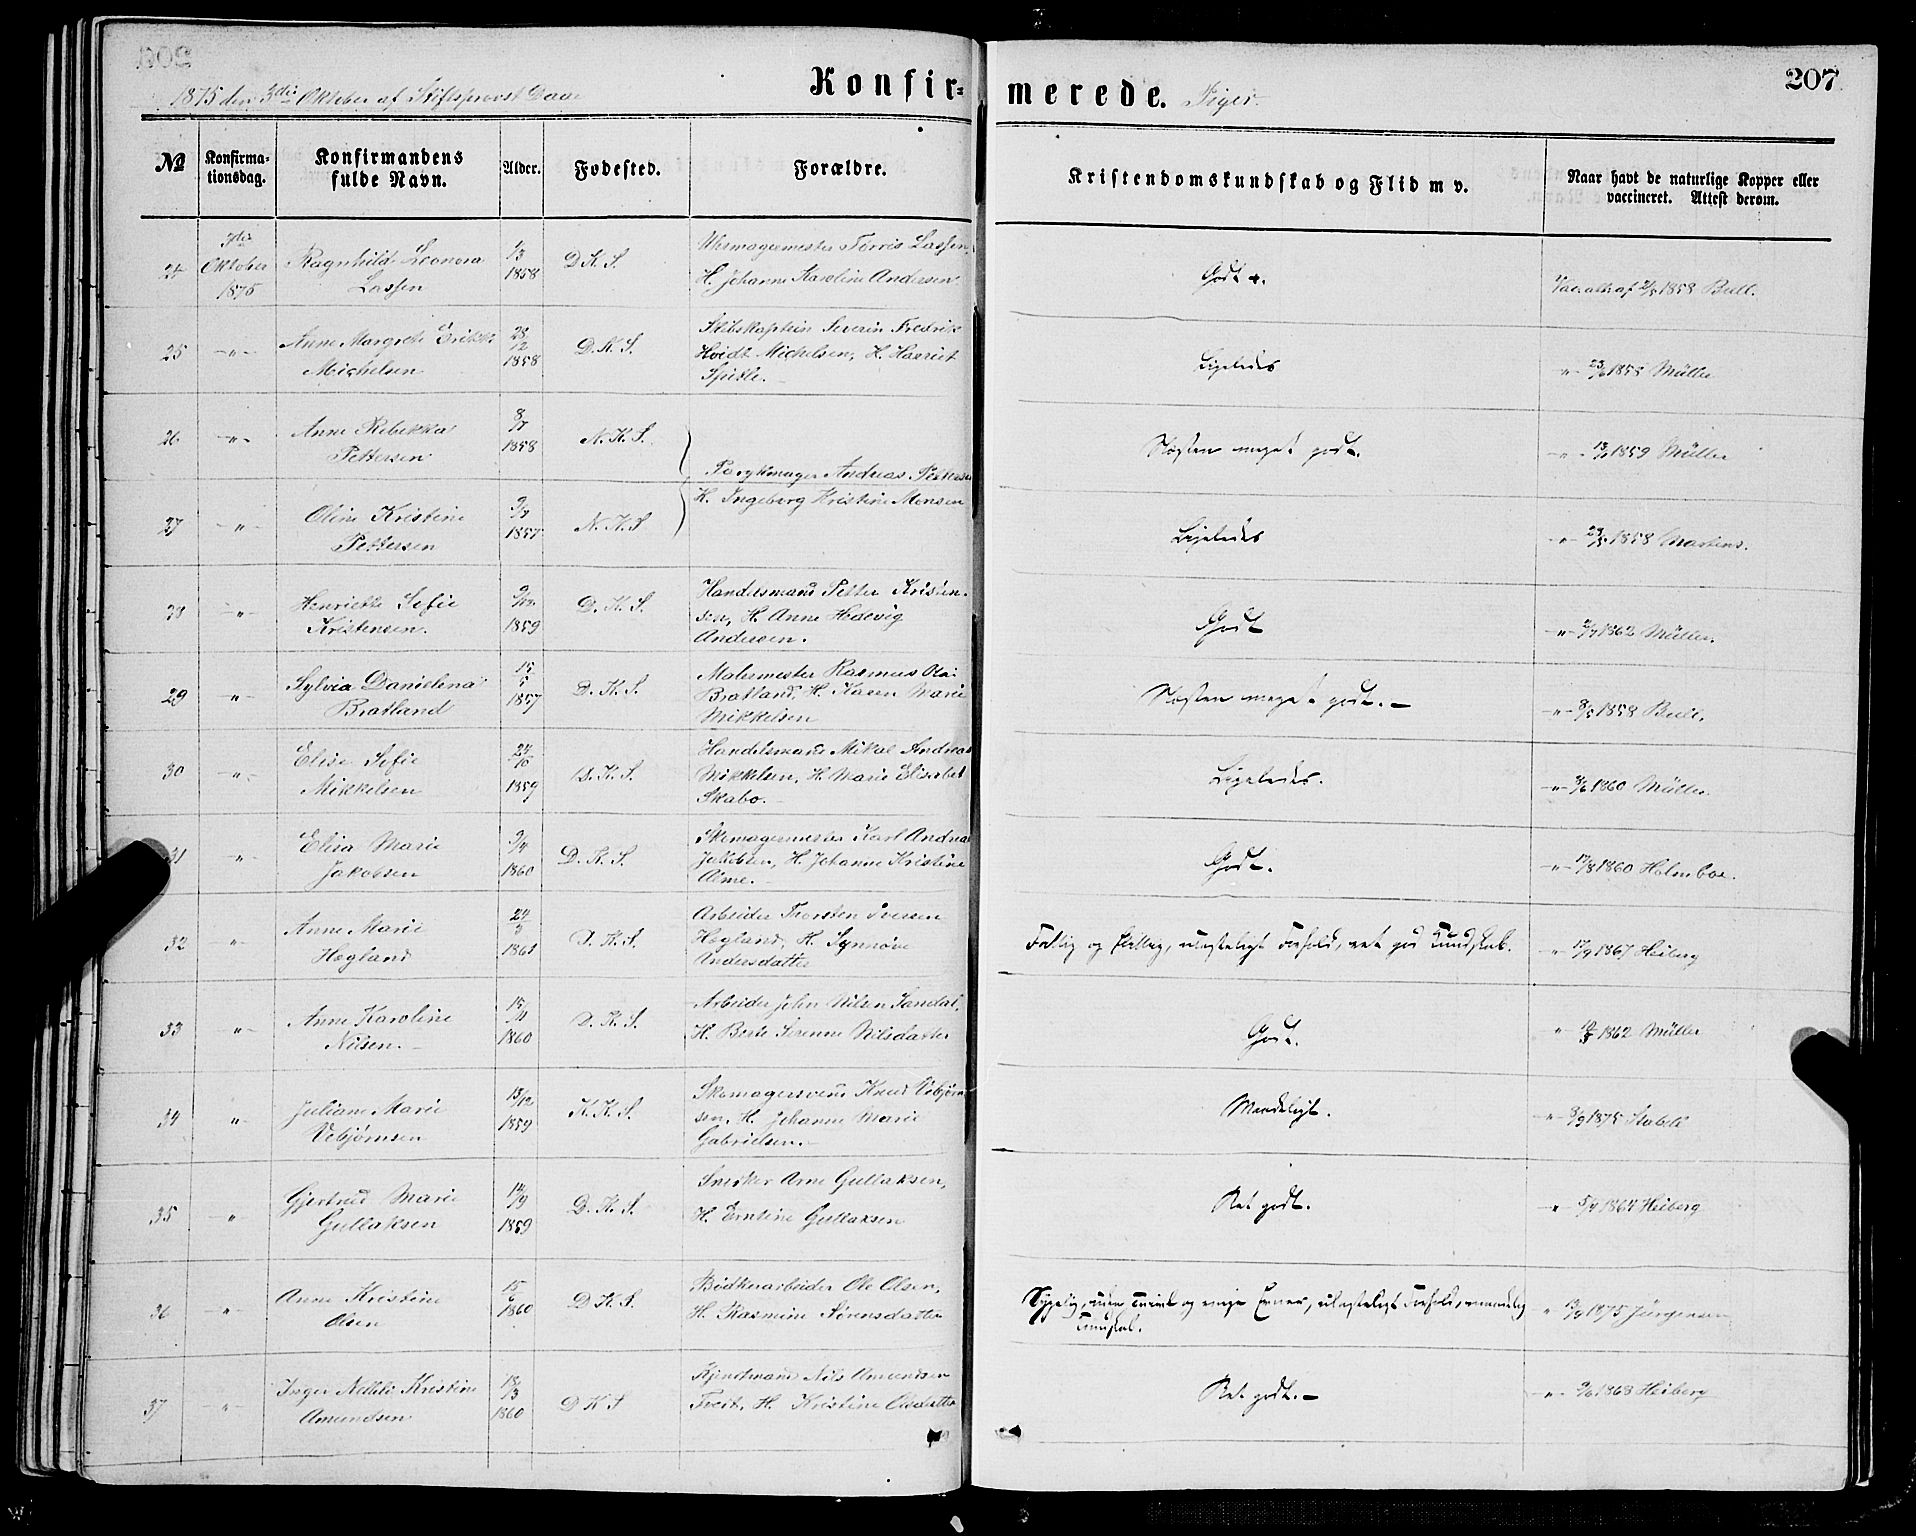 207
1875 den 3die Oktober af Stiftsprovst Daae
Konfir-
merede. Piger.
№
Konfirma-
tionsdag.
Konfirmandens
fulde Navn.
Alder.
Fødested.
Forældre.
Kristendomskundskab og Flid m v.
Naar havt de naturlige Kopper eller
vaccineret. Attest derom.
24 3die Oktober 1875 Ragnhild Leonora Lassen 1/3 1858 D. K. S. Uhrmagermester Torris Lassen, H. Johanne Karoline Andersen Godt. Vac. att. af 1858 Bull.
25 -"- Anne Margrete Michelsen 28/12 1858 D. K. S. Skibskaptein Severin Fredrik Hvidt Michelsen, H. Harriet Ligeledes -"- 1858 Müller
26 -"- Anne Rebekka Pettersen 8/7 1858 N. K. S. Parykmager Andreas Pettersen H. Ingeborg Kristine Monsen Næsten meget godt. -"- 1859 Müller
27 -"- Oline Kristine Pettersen 1857 N. K. S. Ligeledes -"- 1858 Martens.
28 -"- Henriette Sofie Kristensen. 9/12 1859 D. K. S. Handelsmand Petter Kristen-
sen, H. Anne Hedevig Andersen. Godt -"- 1862 Müller.
29 -"- Sylvia Danielena Bratland 1857 D. K. S. Malermester Rasmus Bratland, H. Karen Marie Mikkelsen Næsten meget godt. -"- 1858 Bull.
30 -"- Elise Sofie Mikkelsen 1859 D. K. S. Handelsmand Mikal Andreas Mikkelsen, H. Marie Elisabet Skabo. Ligeledes. -"- 1860 Müller.
31 -"- Elisa Marie Jakobsen 9/4 1860 D. K. S. Skomagermester Karl Andreas Jakobsen, H. Johanne Kristine Godt. -"- 1860 Holmboe.
32 -"- Anne Marie Hegland 1861 D. K. S. Arbeider Thorsten Iversen Hegland, H. Synnøve Andersdatter Fattig og flittig, ulasteligt Forhold, ret god Kundskab. -"- 17/9 1867 Heiberg
33 -"- Anne Karoline Nilsen. 15/11 1860 D. K. S. Arbeider John Nilsen Sandal, H. Berte Serenne Nilsdatter Godt. " 1862 Müller
34 -"- Juliane Marie Vebjørnsen 13/12 1859 K. K. S. Skomagersvend Knud Vebjørn-
sen, H. Johanne Marie Gabrielsen. Maadeligt. -"- 8/9 1875 Stabell
35 -"- Gjertrud Marie Gullaksen 14/9 1859 D. K. S. Snedker Arne Gullaksen, H. Erntine Gullaksen Ret godt. -"- 1864 Heiberg
36 -"- Anne Kristine Olsen 15/6 1860 D. K. S. Bødkerarbeider Ole Olsen, H. Rasmine Sørensdatter Sygelig, uden og ringe Evner, ulasteligt Forhold, maadelig Kundskab. " 1875 Jürgensen
37 -"- Inger Kristine Amundsen 18/3 1860 D K S Nils Amundsen Tveit, H. Kristine Olsdatter Ret godt. -"- 1868 Heiberg